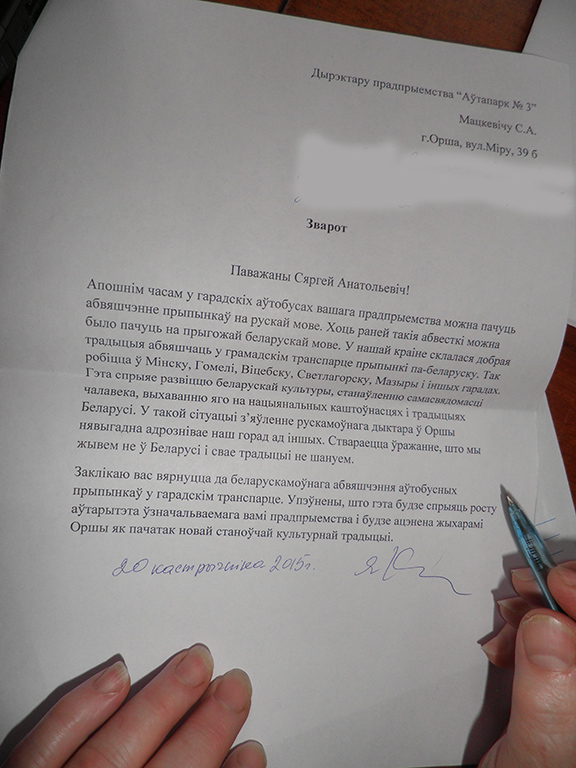 Дырэктару прадпрыемства “Аўтапарк № 3”
Мацкевічу С.А.
г.Орша, вул.Міру, 39 б
Зварот
Паважаны Сяргей Анатольевіч!
Апошнім часам у гарадскіх аўтобусах вашага прадпрыемства можна пачуць
абвяшчэнне прыпынкаў на рускай мове. Хоць раней такія абвесткі можна
было пачуць на прыгожай беларускай мове. У нашай краіне склалася добрая
традыцыя абвяшчаць у грамадскім транспарце прыпынкі па-беларуску. Так
робіцца ў Мінску, Гомелі, Віцебску, Светлагорску, Мазыры і іншых гаралах.
Гэта спрыяе развіццю беларускай культуры, станаўленню самасвядомасці
чалавека, выхаванню яго на нацыянальных каштоўнасцях і традыцыях
Беларусі. У такой сітуацыі з’яўленне рускамоўнага дыктара ў Оршы
нявыгадна адрознівае наш горад ад іншых. Ствараецца ўражанне, што мы
жывем не ў Беларусі і свае традыцыі не шануем.
Заклікаю вас вярнуцца да беларускамоўнага абвяшчэння аўтобусных
прыпынкаў у гарадскім транспарце. Упэўнены, што гэта будзе спрыяць росту
аўтарытэта ўзначальваемага вамі прадпрыемства і будзе ацэнена жыхарамі
Оршы як пачатак новай станоўчай культурнай традыцыі.
20 кастрычніка 2015г.